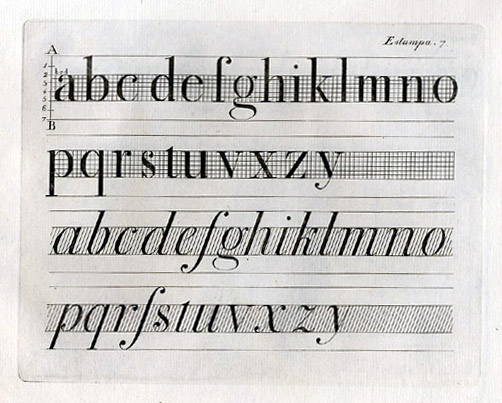 Estampa. 7.
A
1
2
3
4
5
6
7
B
abcdefghiklmno
pqrstuvxzy
abcdefghiklmno
pqrſstuvxzy